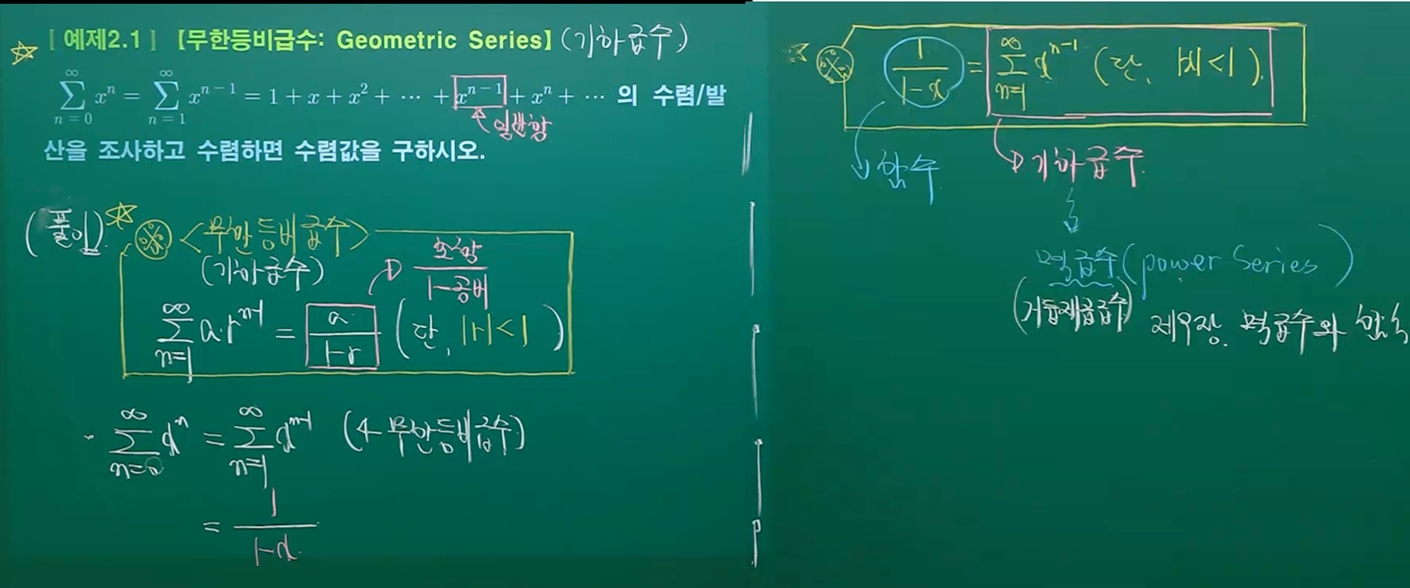 [ 예제2.1 ] 【무한등비급수: Geometric Series】 (기하급수)
∑_{n=0}^{∞} x^n = ∑_{n=1}^{∞} x^{n-1} = 1 + x + x^2 + ⋯ + x^{n-1} + x^n + ⋯ 의 수렴/발
일반항
산을 조사하고 수렴하면 수렴값을 구하시오.
(풀이)
<무한등비급수>
(기하급수)
초항/1-공비
∑_{n=1}^{∞} a·r^{n-1} = a/1-r (단, |r|<1)
∑_{n=0}^{∞} x^n = ∑_{n=1}^{∞} x^{n-1} (← 무한등비급수)
= 1/1-x
1/1-x = ∑_{n=1}^{∞} x^{n-1} (단, |x|<1)
함수
기하급수
멱급수 (power Series)
(거듭제곱급수)
제4장. 멱급수와 함수